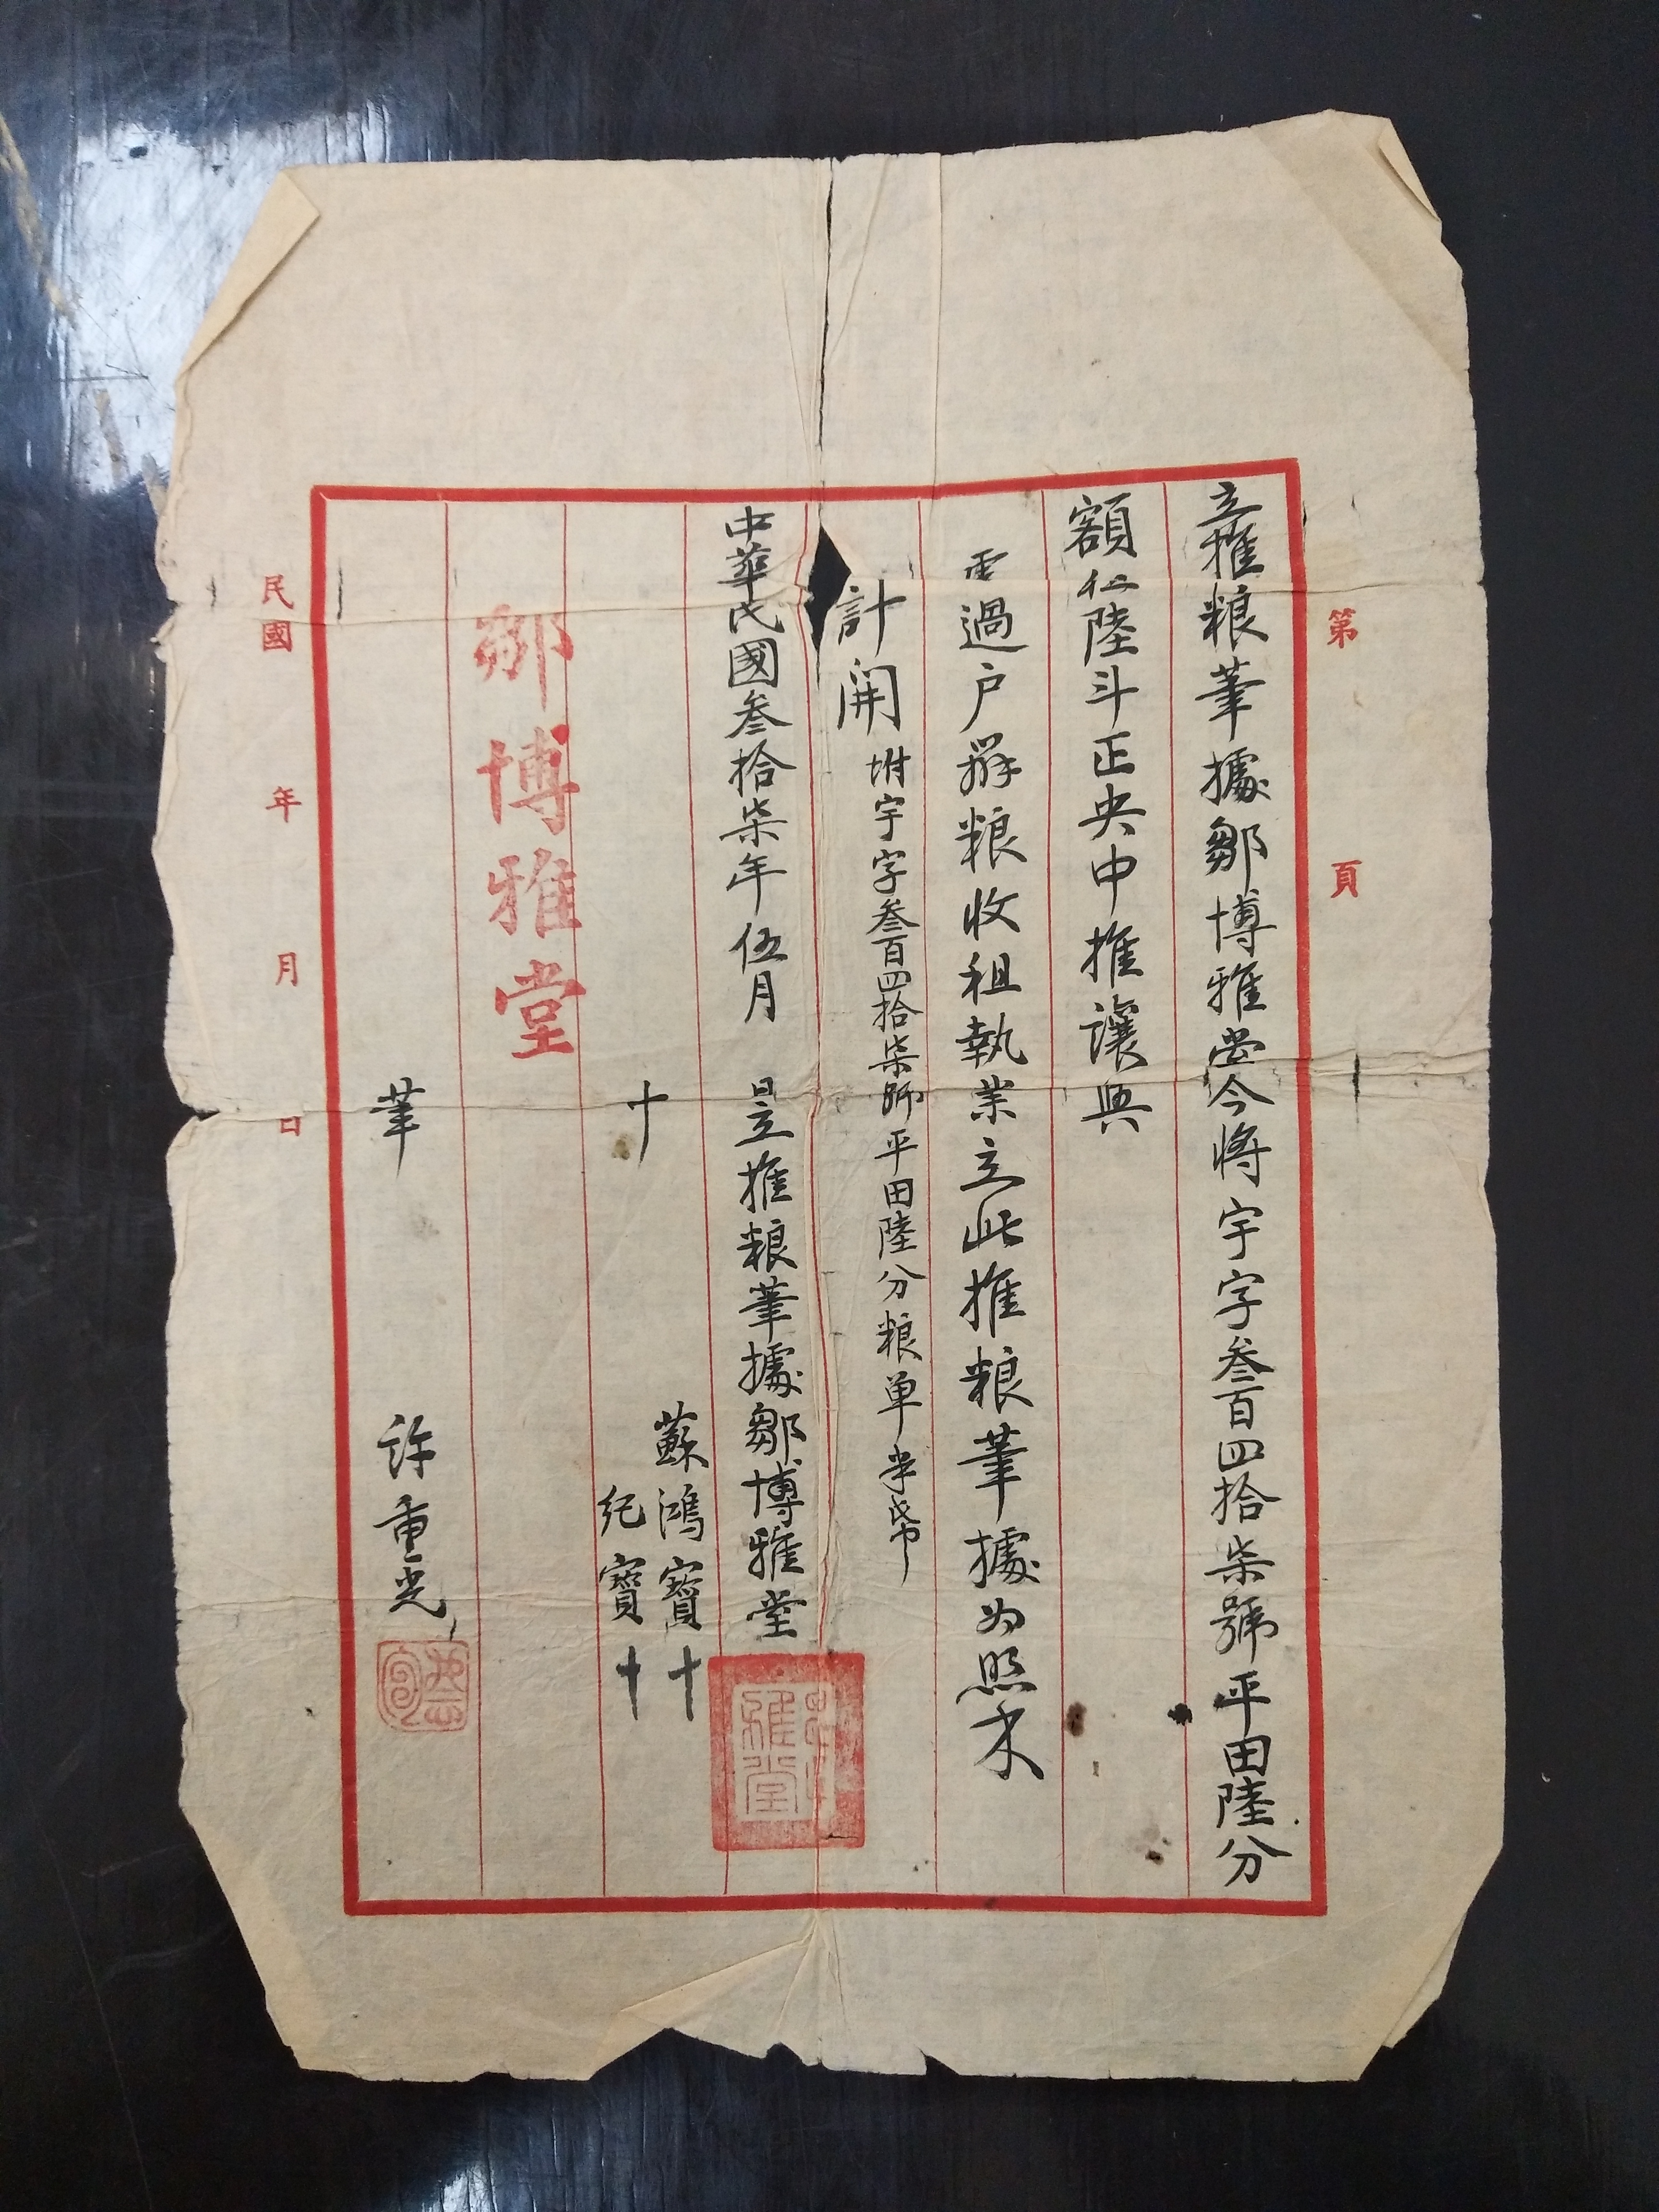 第 頁
立推粮筆據鄒博雅堂今將宇字叁百四拾柒號平田陸分
額仁陸斗正央中推讓與
處過户辦粮收租執業立此推粮筆據為照
計開 坿宇字叁百四拾柒號平田陸分粮单半
中華民國叁拾柒年伍月 日立推粮筆據鄒博雅堂
雅堂
蘇鴻寶十
十 紀寶十
鄒博雅堂
筆 許重光
民國 年 月 日